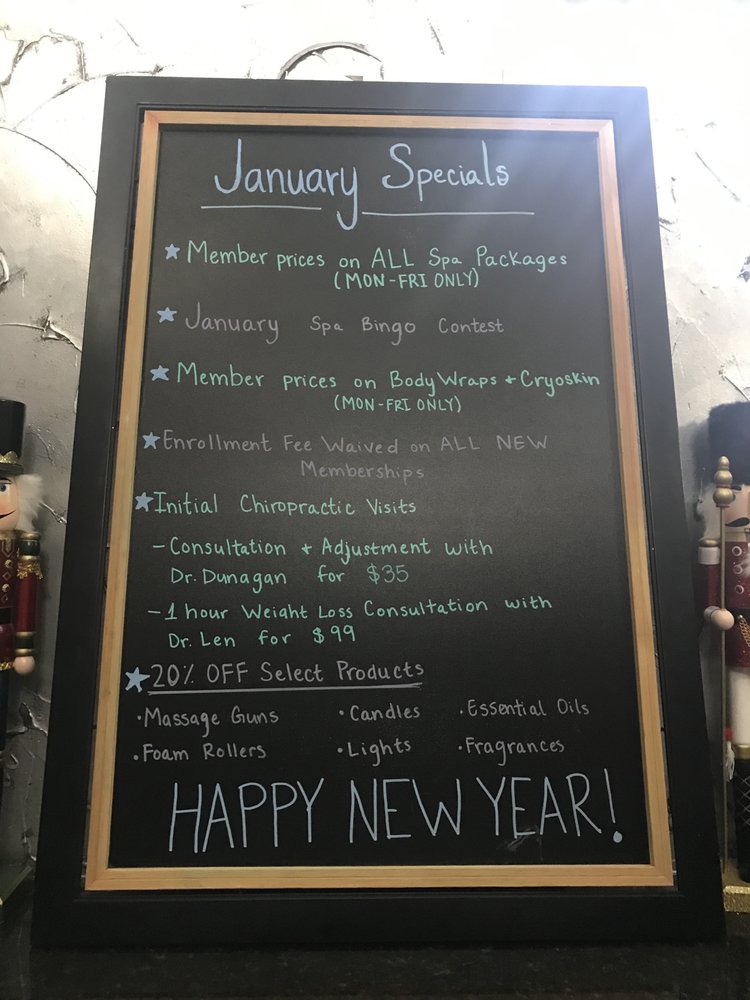 January Specials
Member prices on ALL Spa Packages
(MON-FRI ONLY)
January Spa Bingo Contest
Member prices on Body Wraps + Cryoskin
(MON-FRI ONLY)
Enrollment Fee Waived on ALL NEW
Memberships
Initial Chiropractic Visits
- Consultation + Adjustment with
Dr. Dunagan for $35
- 1 hour Weight Loss Consultation with
Dr. Len for $99
20% OFF Select Products
· Massage Guns · Candles · Essential Oils
· Foam Rollers · Lights · Fragrances
HAPPY NEW YEAR!